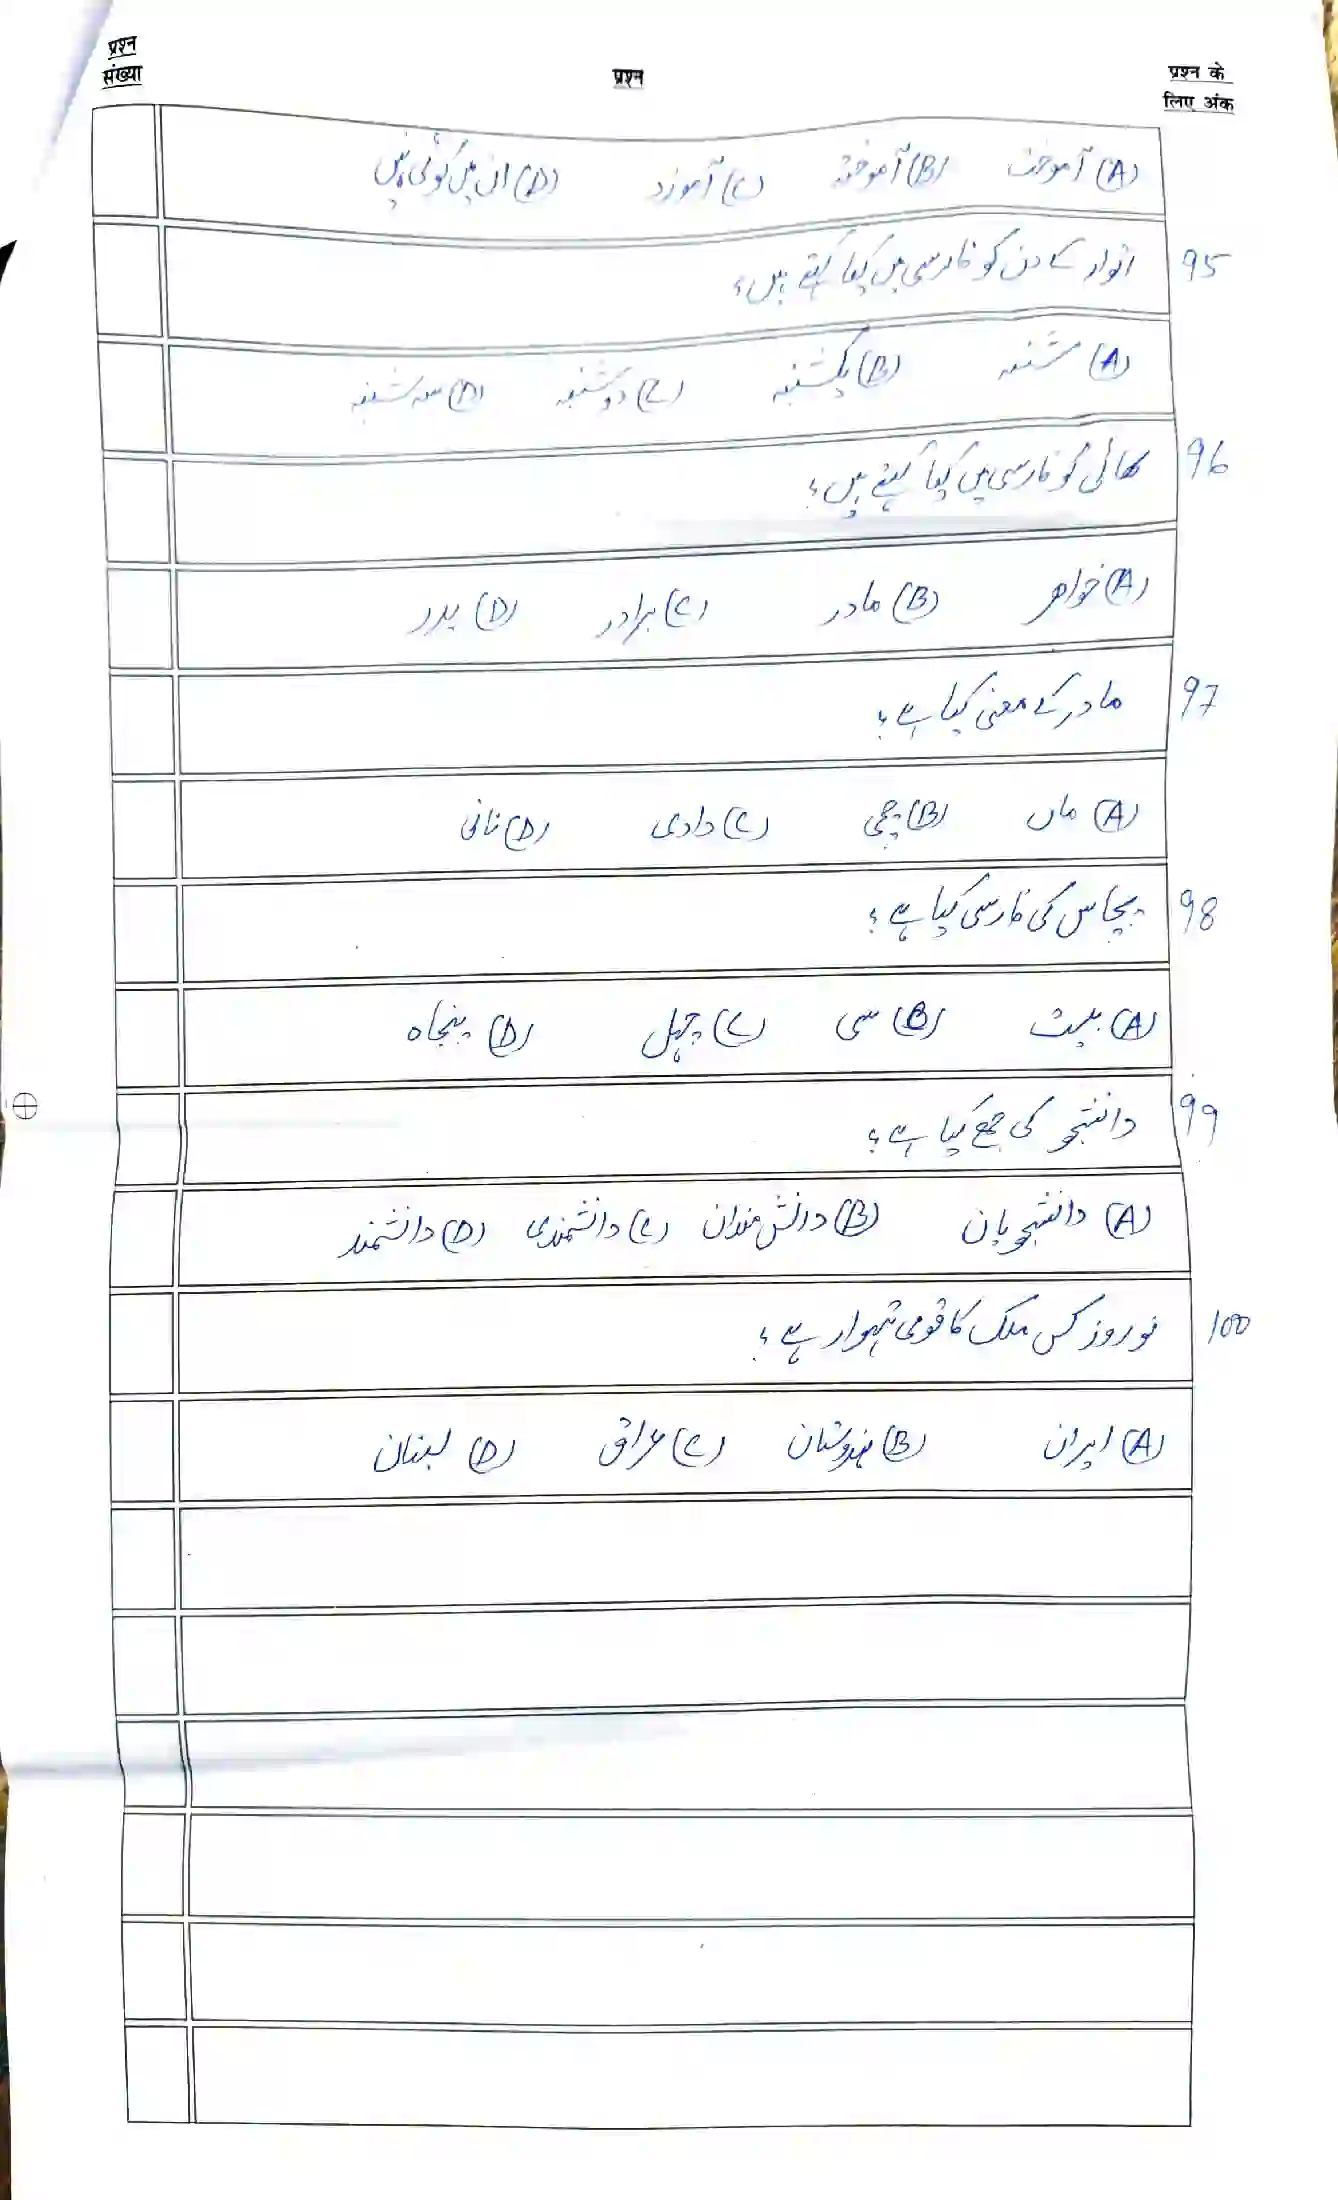 प्रश्न संख्या
प्रश्न
प्रश्न के लिए अंक
(A) آموخت (B) آموختہ (C) آموزد (D) ان میں کوئی نہیں
95 اتوار کے دن کو فارسی میں کیا کہتے ہیں؟
(A) شنبہ (B) یکشنبہ (C) دوشنبہ (D) سہ شنبہ
96 بھائی کو فارسی میں کیا کہتے ہیں؟
(A) خواھر (B) مادر (C) برادر (D) پدر
97 مادر کے معنی کیا ہے؟
(A) ماں (B) چچی (C) دادی (D) نانی
98 پچاس کی فارسی کیا ہے؟
(A) بیست (B) سی (C) چہل (D) پنجاہ
99 دانشجو کی جمع کیا ہے؟
(A) دانشجویان (B) دانش مندان (C) دانشمندی (D) دانشمند
100 نوروز کس ملک کا قومی تہوار ہے؟
(A) ایران (B) ہندوستان (C) عراق (D) لبنان